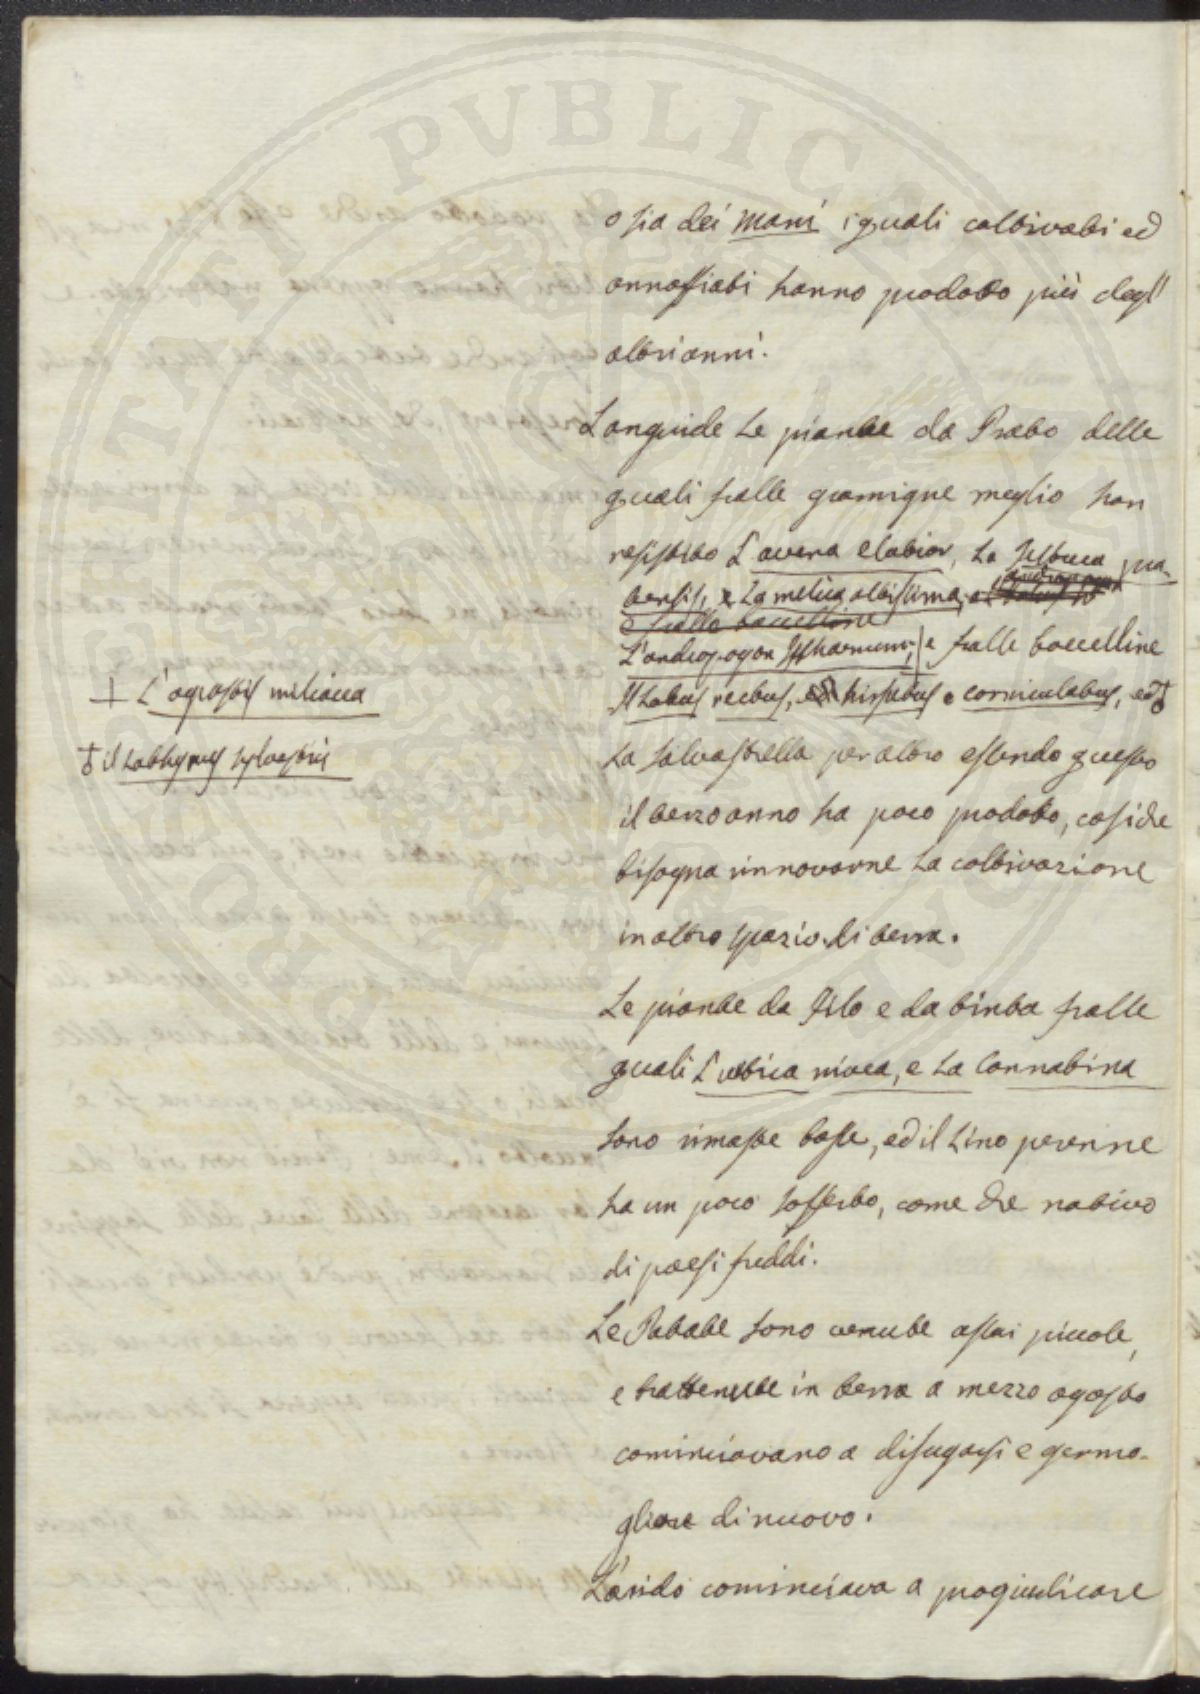 osia dei Mani i quali coltivati ed
annaffiati hanno prodotto più degl'
altri anni.
Languide Le piante da Prato delle
quali fralle gramigne meglio han
resistito L'avena elatior, La festuca pra-
tensis, e La melica altissima,
e fralle baccelline
L'andropogon Ischaemum, e fralle baccelline
Il Lotus rectus, hirsutus e corniculatus, ed
La Salvastrella per altro essendo questo
il terzo anno ha poco prodotto, cosiche
bisogna rinnovarne La coltivazione
in altro spazio di terra.
Le piante da filo e da tinta fralle
quali L'urtica nivea, e La Cannabina
sono rimaste basse, ed il Lino perenne
ha un poco sofferto, come che nativo
di paesi freddi.
Le Patate sono venute assai piccole,
e trattenute in terra a mezzo agosto
cominciavano a disugarsi e germo-
gliare di nuovo.
L'arido cominciava a pregiudicare
L'agrostis miliacea
il Lathyrus sylvestris
PUBLICAE